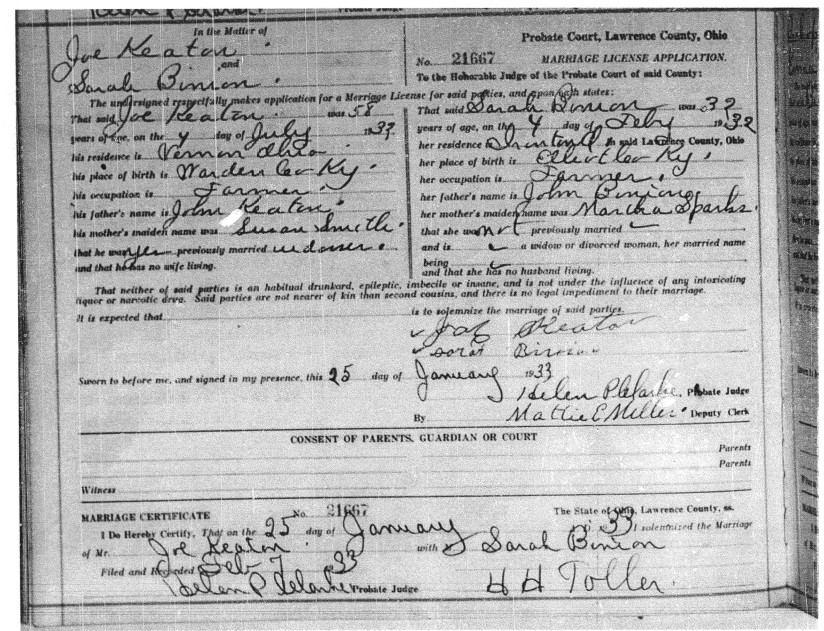 In the Matter of
Joe Keaton
and
Sarah Binion.
Probate Court, Lawrence County, Ohio
No. 21667 MARRIAGE LICENSE APPLICATION.
To the Honorable Judge of the Probate Court of said County:
The undersigned respectfully makes application for a Merriage License for said parties, and upon oath states:
That said Joe Keaton was 58
years of age, on the 4 day of July 1933.
his residence is Vernon Ohio
his place of birth is Warden Co Ky.
his occupation is Farmer.
his father's name is John Keaton.
his mother's maiden name was Susan Smith.
that he was yes previously married widower.
and that he has no wife living.
That said Sarah Binion was 32
years of age, on the 4 day of Feby 1932
her residence is Ironton O. In said Lawrence County, Ohio
her place of birth is Elliott Co Ky.
her occupation is Farmer.
her father's name is John Binion
her mother's maiden name was Martha Sparks.
that she was not previously married
and is a widow or divorced woman, her married name
being
and that she has no husband living.
That neither of said parties is an habitual drunkard, epileptic, imbecile or insane, and is not under the influence of any intoxicating
liquor or narcotic drug. Said parties are not nearer of kin than second cousins, and there is no legal impediment to their marriage.
It is expected that is to solemnize the marriage of said parties.
Keaton
Sworn to before me, and signed in my presence, this 25 day of January 1933
Helen P Clarke, Probate Judge
By Mattie E Miller. Deputy Clerk
CONSENT OF PARENTS, GUARDIAN OR COURT
Parents
Parents
Witness
MARRIAGE CERTIFICATE No. 21667 The State of Ohio, Lawrence County, ss.
I Do Hereby Certify, That on the 25 day of January 33 I solemnized the Marriage
of Mr. Joe Keaton with Sarah Binion
Filed and Recorded Feb 7 33
Helen P Clarke Probate Judge H H Toller.